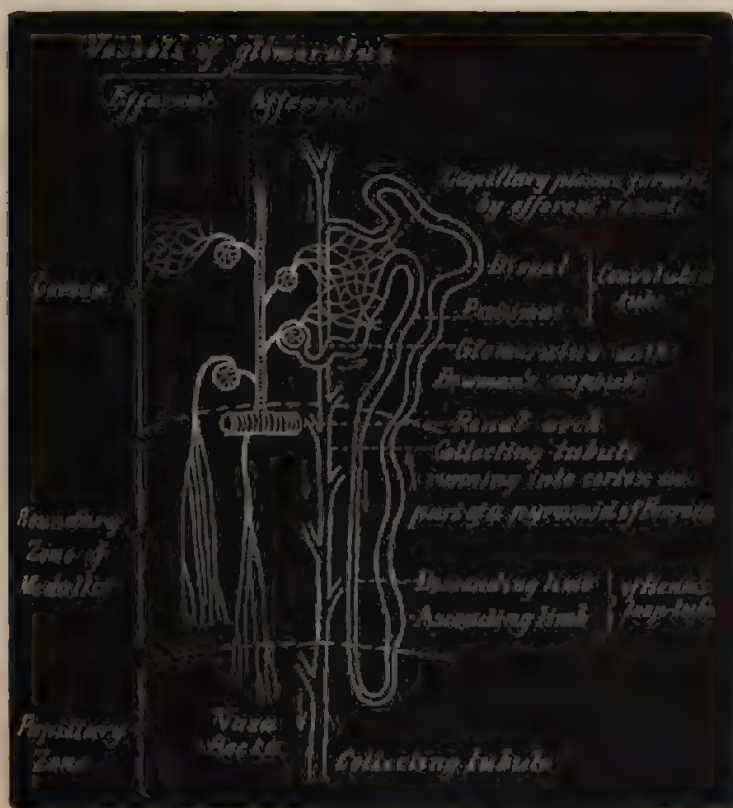 Vessels of glomerulus
Efferent Afferent
Capillary plexus formed
by efferent vessels
Cortex
Distal
Proximal
Convoluted
Glomerulus with
Bowman's capsule
Renal arch
Collecting tubule
running into cortex as
part of a pyramid of Ferrein
Boundary
Zone of
Medulla
Descending limb
Ascending limb
of Henle's
Papillary
Zone
Vasa
Recta
Collecting tubule